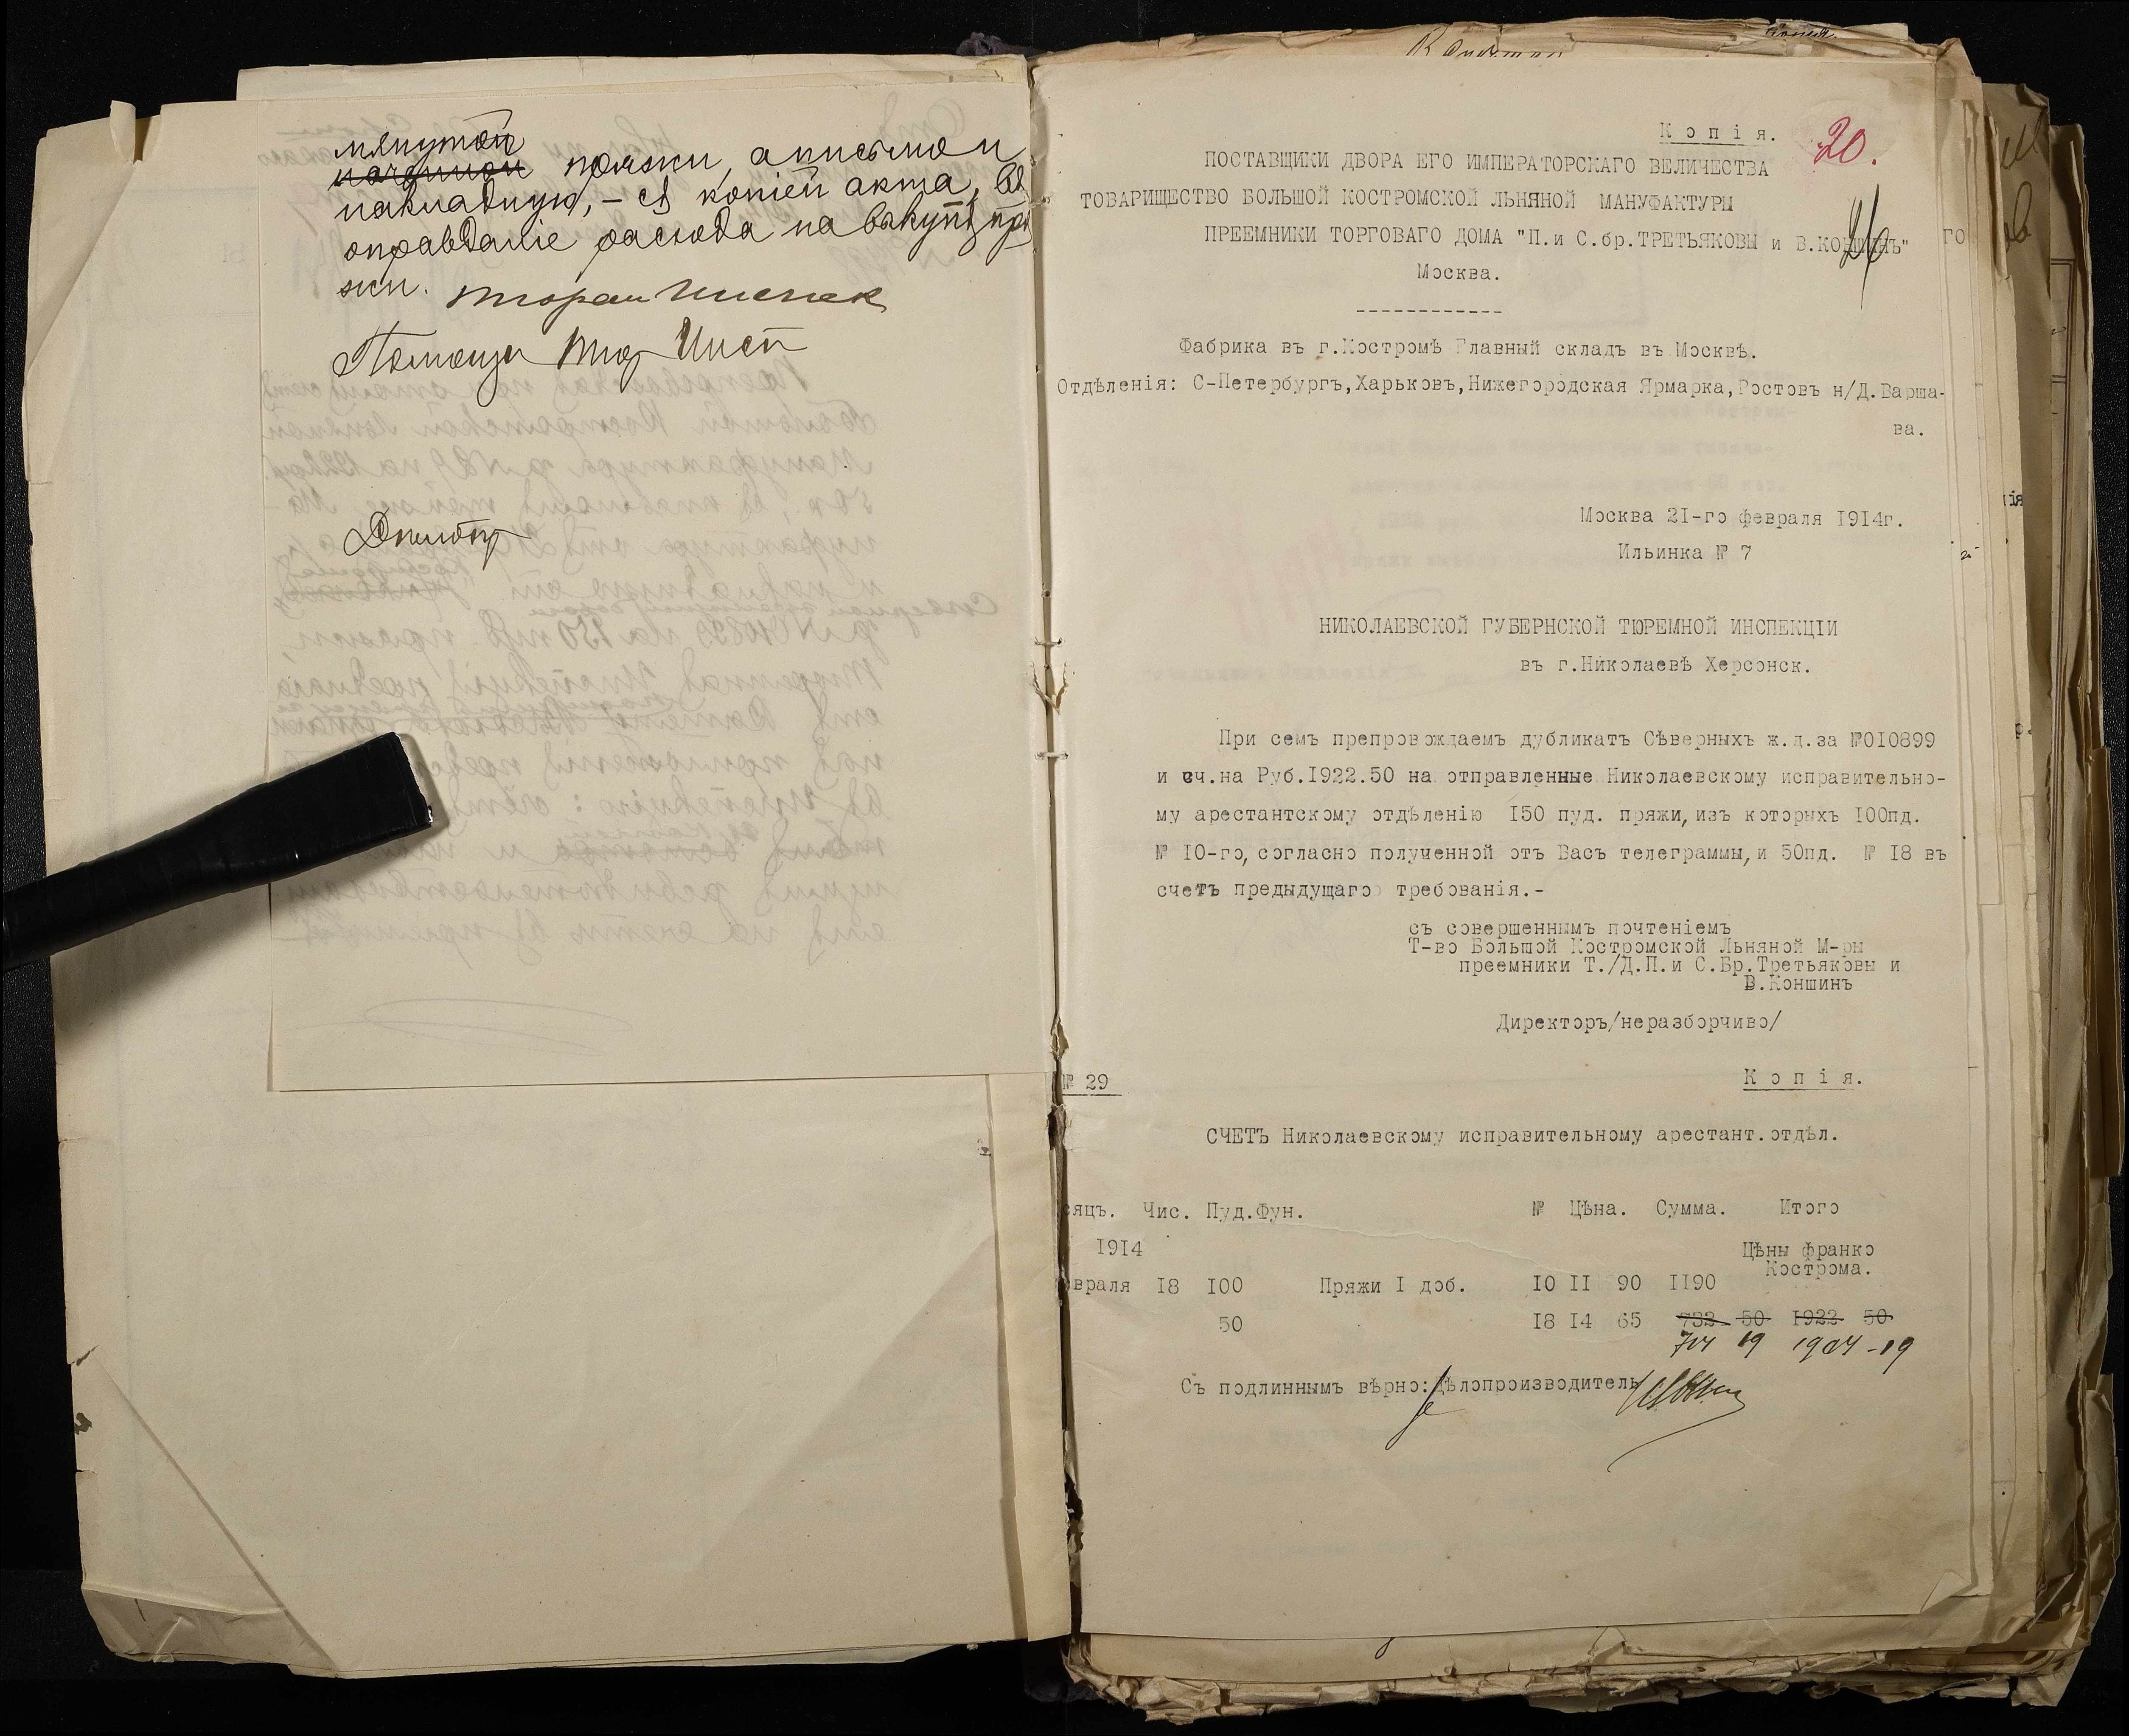 мянутой
пряжи, а письмо и
накладную, – съ копіей акта, въ
оправданіе расхода на выкупъ пря
жи.
Помощн Тюр Инсп
Копія.
20.
ПОСТАВЩИКИ ДВОРА ЕГО ИМПЕРАТОРСКАГО ВЕЛИЧЕСТВА
ТОВАРИЩЕСТВО БОЛЬШОЙ КОСТРОМСКОЙ ЛЬНЯНОЙ МАНУФАКТУРЫ
ПРЕЕМНИКИ ТОРГОВАГО ДОМА "П.и С.бр.ТРЕТЬЯКОВЫ и В.КОНШИНЪ"
Москва.
------------
Фабрика въ г.Костромѣ Главный складъ въ Москвѣ.
Отдѣленія: С-Петербургъ,Харьковъ,Нижегородская Ярмарка,Ростовъ н/Д.Варша-
ва.
Москва 21-го февраля 1914г.
Ильинка № 7
НИКОЛАЕВСКОЙ ГУБЕРНСКОЙ ТЮРЕМНОЙ ИНСПЕКЦІИ
въ г.Николаевѣ Херсонск.
При семъ препровождаемъ дубликатъ Сѣверныхъ ж.д.за №010899
и сч.на Руб.1922.50 на отправленные Николаевскому исправительно-
му арестантскому отдѣленію 150 пуд. пряжи,изъ которыхъ 100пд.
№ 10-го,согласно полученной отъ Васъ телеграммы,и 50пд. № 18 въ
счетъ предыдущаго требованія.-
съ совершеннымъ почтеніемъ
Т-во Большой Костромской Льняной М-ры
преемники Т./Д.П.и С.Бр.Третьяковы и
В.Коншинъ
Директоръ/неразборчиво/
№ 29
Копія.
СЧЕТЪ Николаевскому исправительному арестант.отдѣл.
сяцъ. Чис. Пуд.Фун. № Цѣна. Сумма. Итого
1914 Цѣны франко
Кострома.
враля 18 100 Пряжи 1 доб. 10 11 90 1190
50 18 14 65 732 50 1922 50
714 19 1904-19
Съ подлиннымъ вѣрно:Дѣлопроизводитель